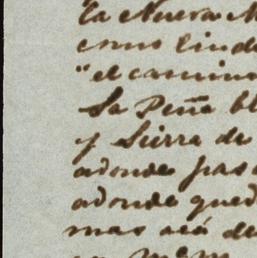 la Nueva M
como linde
"el camino
La Peña bl
y Sierra de
adonde pas
adonde qued
mas acá de